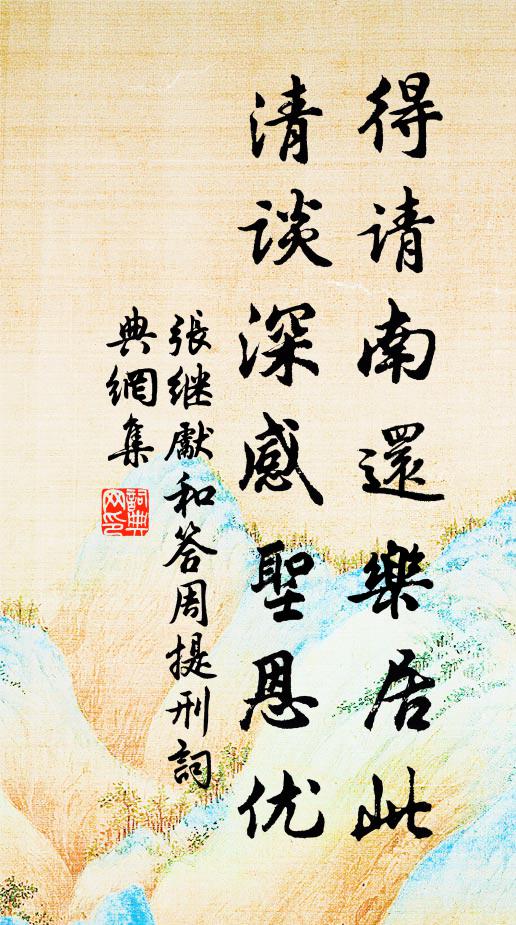 得请南還樂居此
清谈深感聖恩优
張继獻和答周提刑詞
典網集
詞典
网印